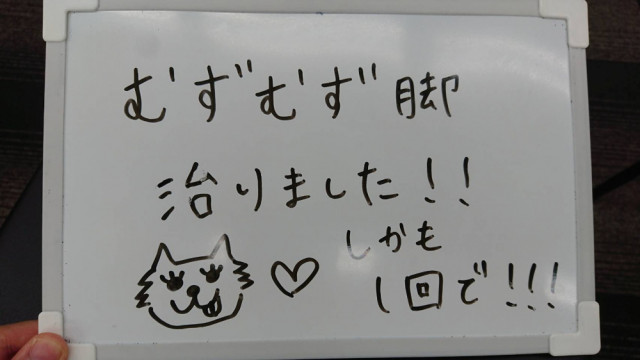 むずむず脚
治りました!!
しかも
1回で!!!